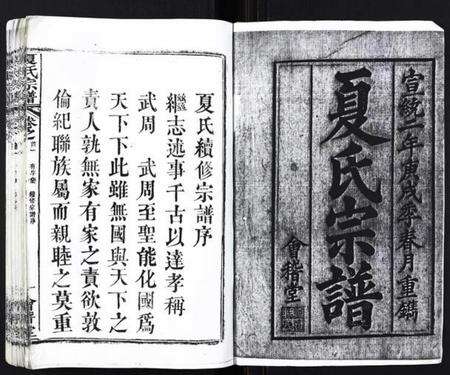 宣統二年庚戌年春月重鐫
夏氏宗譜
會稽堂
夏氏續修宗譜序
繼志述事千古以達孝稱
武周 武周至聖能化國爲
天下下此雖無國與天下之
責人孰無家有家之責欲敦
倫紀聯族屬而親睦之莫重
夏氏宗譜
卷之
會稽堂